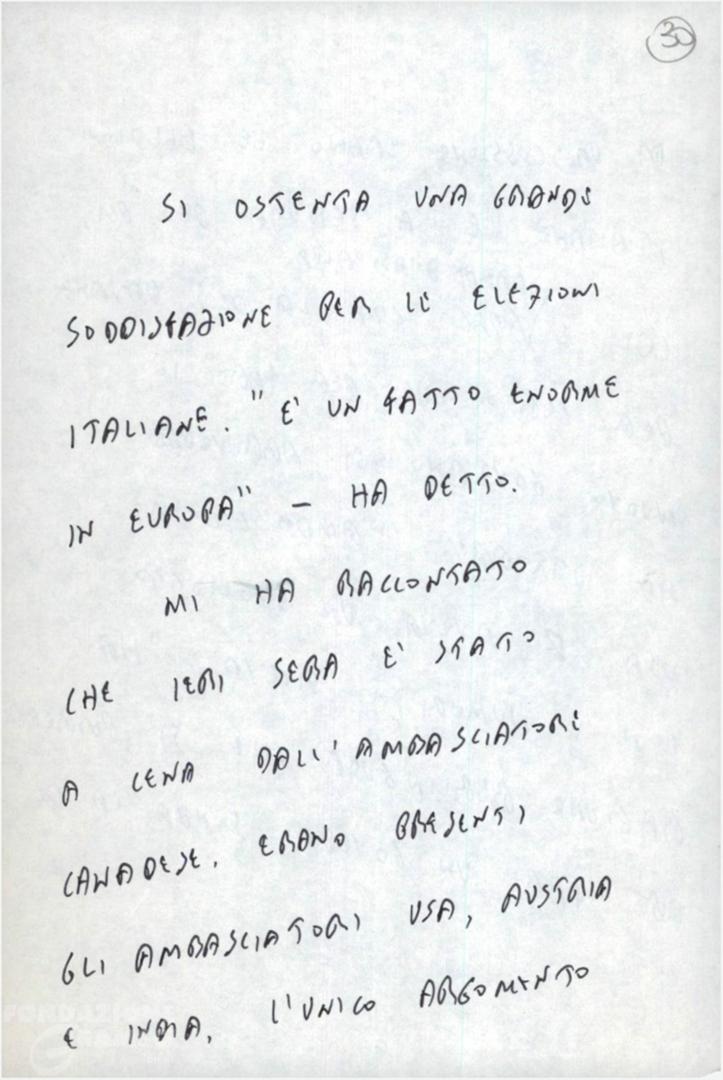 30
SI OSTENTA UNA GRANDE
SODDISFAZIONE PER LE ELEZIONI
ITALIANE. "E' UN FATTO ENORME
IN EUROPA" - HA DETTO.
MI HA RACCONTATO
CHE IERI SERA E' STATO
A CENA DALL'AMBASCIATORE
CANADESE. ERANO PRESENTI
GLI AMBASCIATORI USA, AUSTRIA
E INDIA. L'UNICO ARGOMENTO